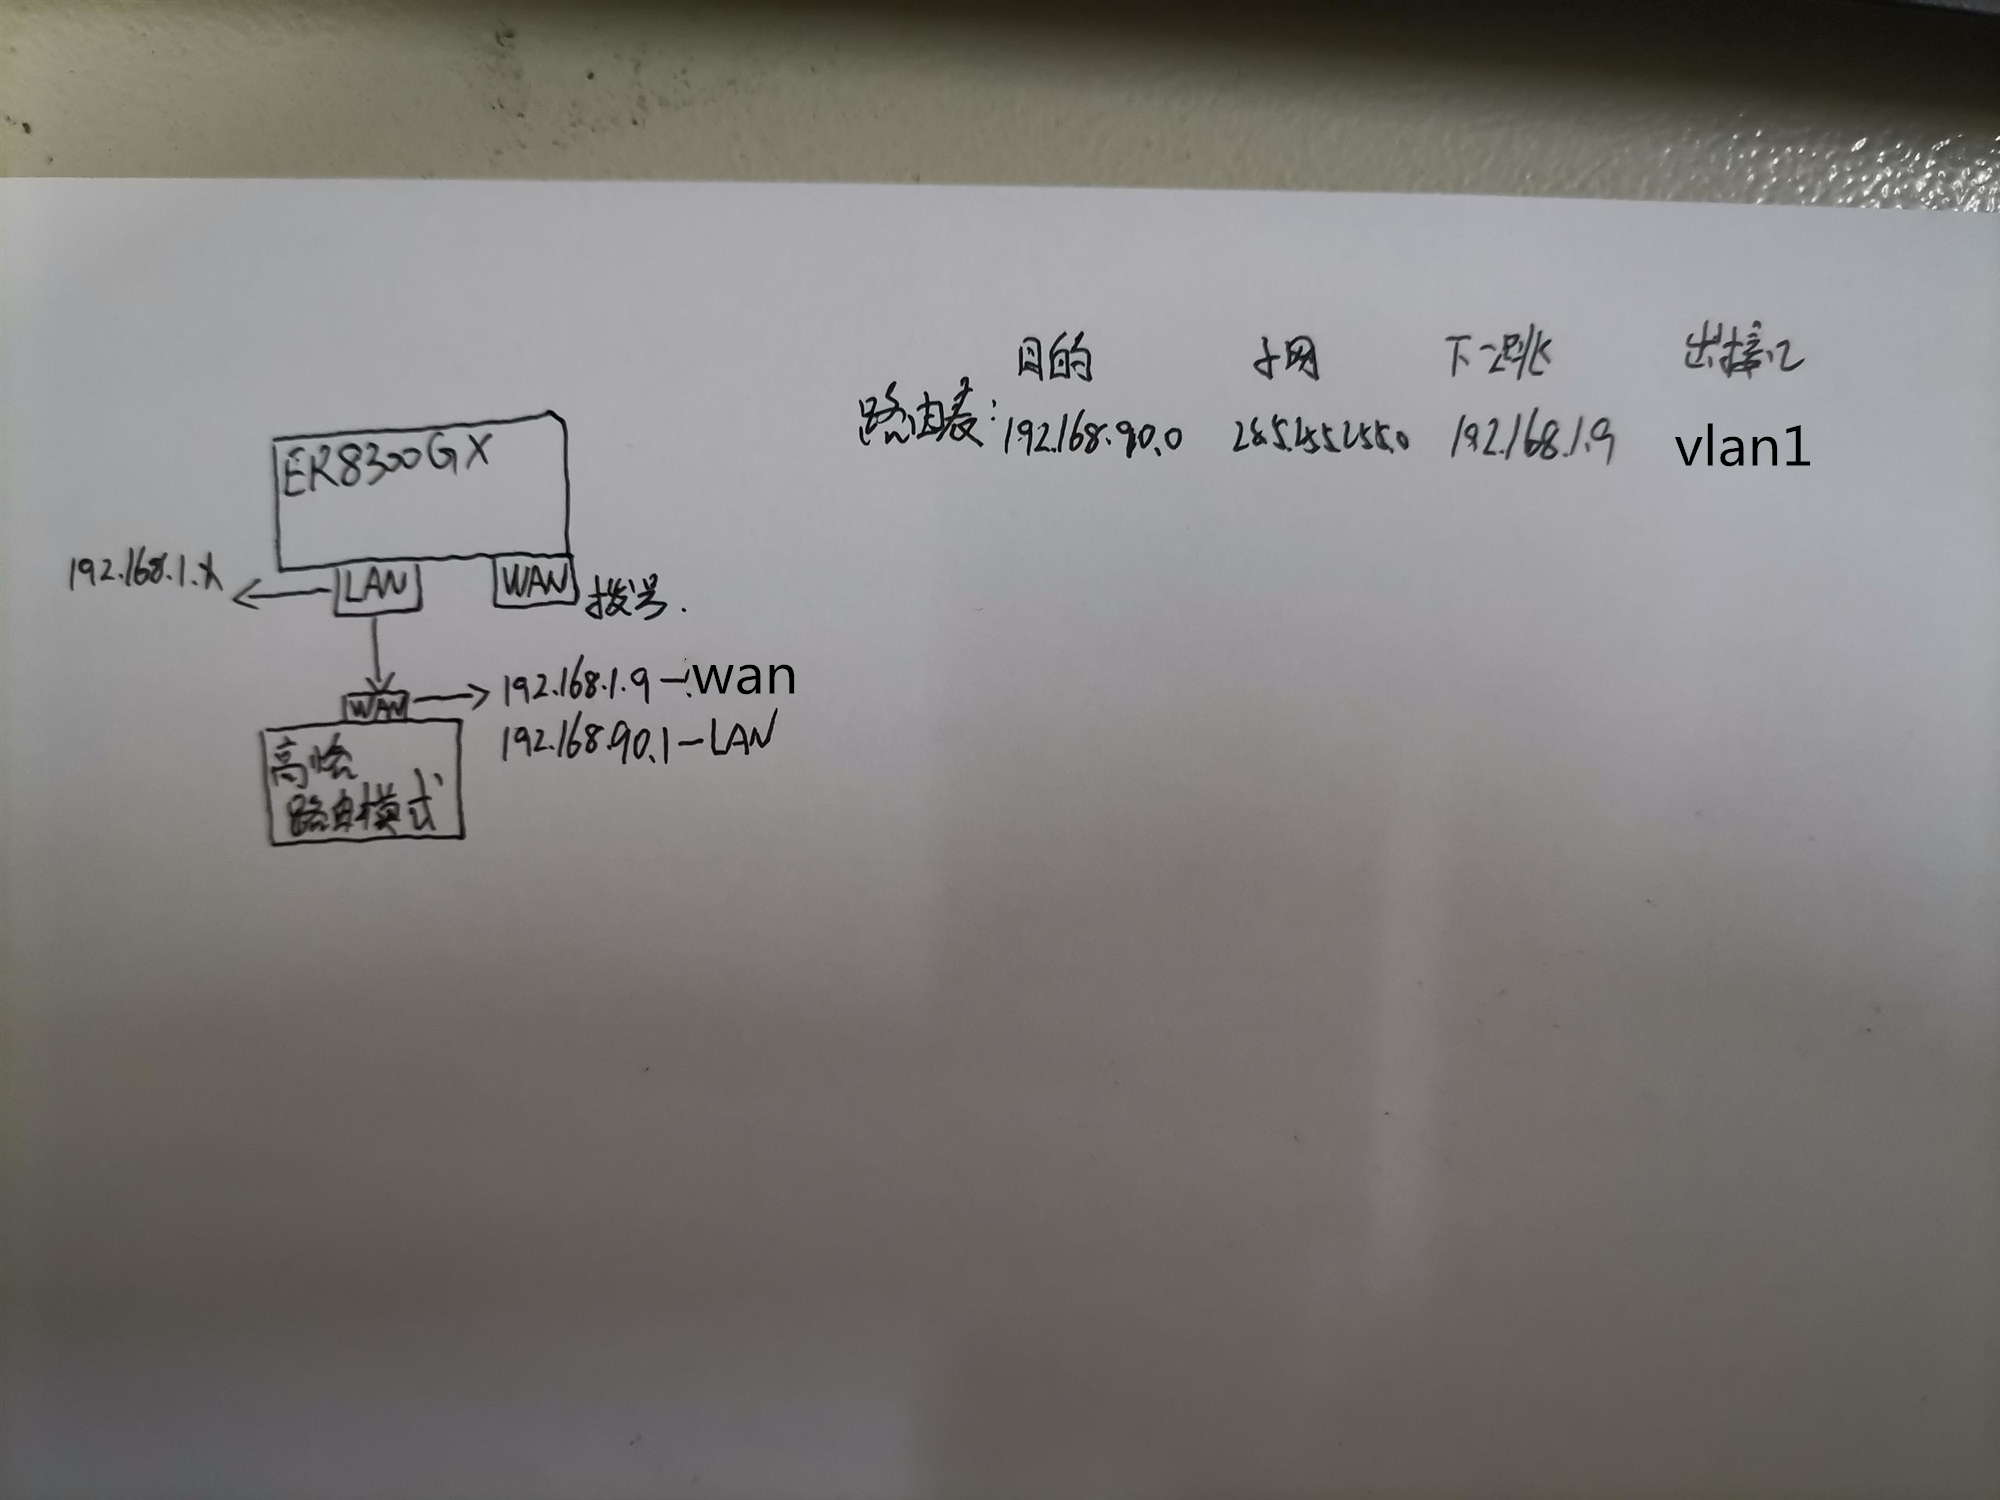 目的 子网 下一跳 出接口
路由表: 192.168.90.0 255.255.255.0 192.168.1.9 vlan1
ER8300GX
192.168.1.X
LAN
WAN
拨号.
WAN
192.168.1.9-wan
192.168.90.1-LAN
高恪
路由模式